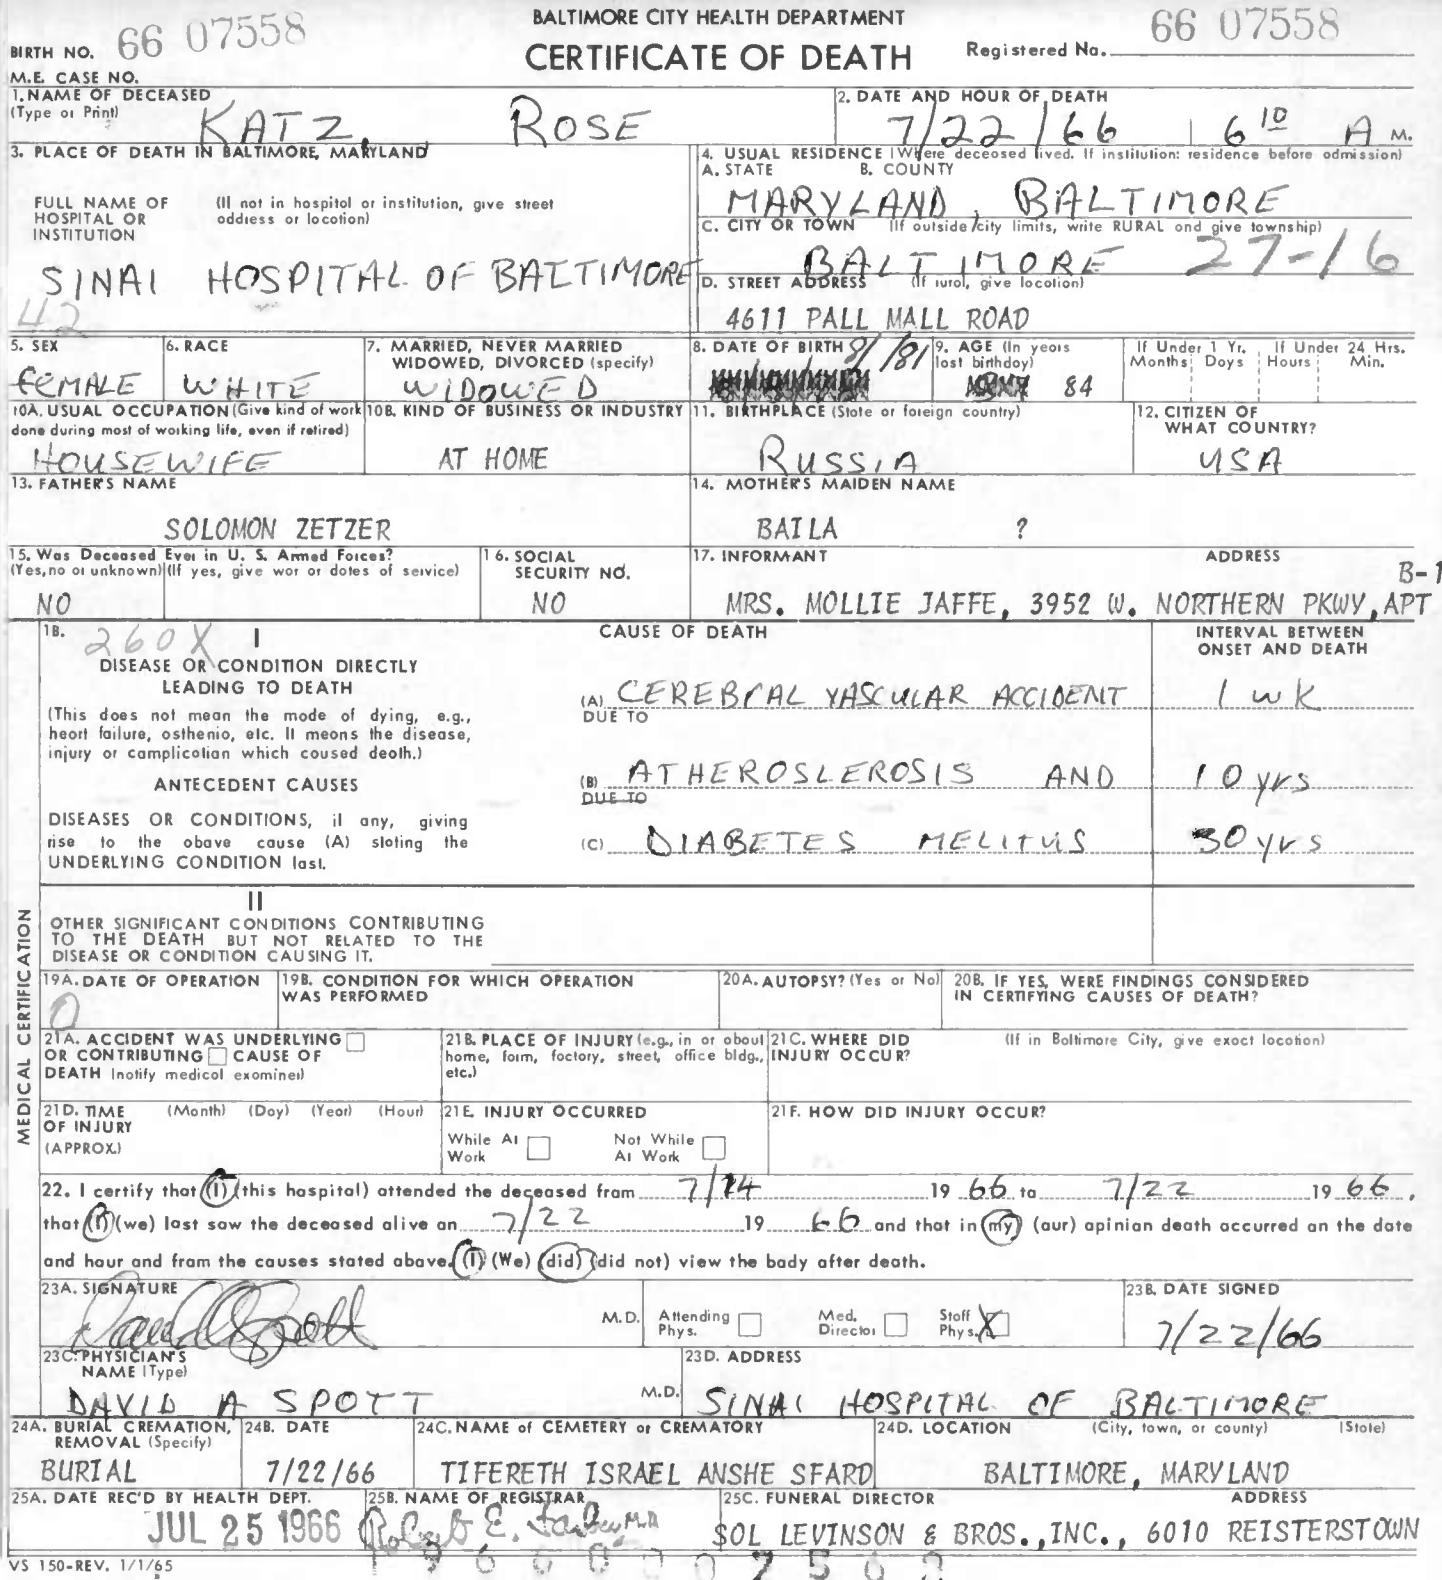 BALTIMORE CITY HEALTH DEPARTMENT
CERTIFICATE OF DEATH
BIRTH NO. 66 07558
Registered No. 66 07558
M.E. CASE NO.
1. NAME OF DECEASED
(Type or Print)
KATZ, ROSE
2. DATE AND HOUR OF DEATH
7/22/66 | 6 10 A M.
3. PLACE OF DEATH IN BALTIMORE, MARYLAND
FULL NAME OF HOSPITAL OR INSTITUTION
(If not in hospital or institution, give street address or location)
SINAI HOSPITAL OF BALTIMORE
42
4. USUAL RESIDENCE (Where deceased lived. If institution: residence before admission)
A. STATE B. COUNTY
MARYLAND, BALTIMORE
C. CITY OR TOWN (If outside city limits, write RURAL and give township)
BALTIMORE 27-16
D. STREET ADDRESS (If rural, give location)
4611 PALL MALL ROAD
5. SEX
FEMALE
6. RACE
WHITE
7. MARRIED, NEVER MARRIED WIDOWED, DIVORCED (specify)
WIDOWED
8. DATE OF BIRTH
8/ /81
9. AGE (In years last birthday)
84
If Under 1 Yr. Months Days
If Under 24 Hrs. Hours Min.
10A. USUAL OCCUPATION (Give kind of work done during most of working life, even if retired)
HOUSEWIFE
10B. KIND OF BUSINESS OR INDUSTRY
AT HOME
11. BIRTHPLACE (State or foreign country)
RUSSIA
12. CITIZEN OF WHAT COUNTRY?
USA
13. FATHER'S NAME
SOLOMON ZETZER
14. MOTHER'S MAIDEN NAME
BAILA ?
15. Was Deceased Ever in U. S. Armed Forces?
(Yes, no or unknown) (If yes, give war or dates of service)
NO
16. SOCIAL SECURITY NO.
NO
17. INFORMANT ADDRESS
B-1
MRS. MOLLIE JAFFE, 3952 W. NORTHERN PKWY, APT
18. 260X I
DISEASE OR CONDITION DIRECTLY LEADING TO DEATH
(This does not mean the mode of dying, e.g., heart failure, asthenia, etc. It means the disease, injury or complication which caused death.)
ANTECEDENT CAUSES
DISEASES OR CONDITIONS, if any, giving rise to the above cause (A) stating the UNDERLYING CONDITION last.
CAUSE OF DEATH
INTERVAL BETWEEN ONSET AND DEATH
(A) CEREBRAL VASCULAR ACCIDENT 1 wk
DUE TO
(B) ATHEROSLEROSIS AND 10 yrs
DUE TO
(C) DIABETES MELITUS 30 yrs
II
OTHER SIGNIFICANT CONDITIONS CONTRIBUTING TO THE DEATH BUT NOT RELATED TO THE DISEASE OR CONDITION CAUSING IT.
MEDICAL CERTIFICATION
19A. DATE OF OPERATION
0
19B. CONDITION FOR WHICH OPERATION WAS PERFORMED
20A. AUTOPSY? (Yes or No)
20B. IF YES, WERE FINDINGS CONSIDERED IN CERTIFYING CAUSES OF DEATH?
21A. ACCIDENT WAS UNDERLYING OR CONTRIBUTING CAUSE OF DEATH (notify medical examiner)
21B. PLACE OF INJURY (e.g., in or about home, farm, factory, street, office bldg., etc.)
21C. WHERE DID INJURY OCCUR? (If in Baltimore City, give exact location)
21D. TIME OF INJURY (APPROX.) (Month) (Day) (Year) (Hour)
21E. INJURY OCCURRED
While At Work Not While At Work
21F. HOW DID INJURY OCCUR?
22. I certify that (I) (this hospital) attended the deceased from 7/14 19 66 to 7/22 19 66,
that (I) (we) last saw the deceased alive on 7/22 19 66 and that in (my) (our) opinion death occurred on the date
and hour and from the causes stated above. (I) (We) (did) (did not) view the body after death.
23A. SIGNATURE
David A Spott M.D.
Attending Phys. Med. Director Staff Phys. X
23B. DATE SIGNED
7/22/66
23C. PHYSICIAN'S NAME (Type)
DAVID A SPOTT M.D.
23D. ADDRESS
SINAI HOSPITAL OF BALTIMORE
24A. BURIAL CREMATION, REMOVAL (Specify)
BURIAL
24B. DATE
7/22/66
24C. NAME of CEMETERY or CREMATORY
TIFERETH ISRAEL ANSHE SFARD
24D. LOCATION (City, town, or county) (State)
BALTIMORE, MARYLAND
25A. DATE REC'D BY HEALTH DEPT.
JUL 25 1966
25B. NAME OF REGISTRAR
Robert E. Farber M.D.
25C. FUNERAL DIRECTOR ADDRESS
SOL LEVINSON & BROS., INC., 6010 REISTERSTOWN
VS 150-REV. 1/1/65